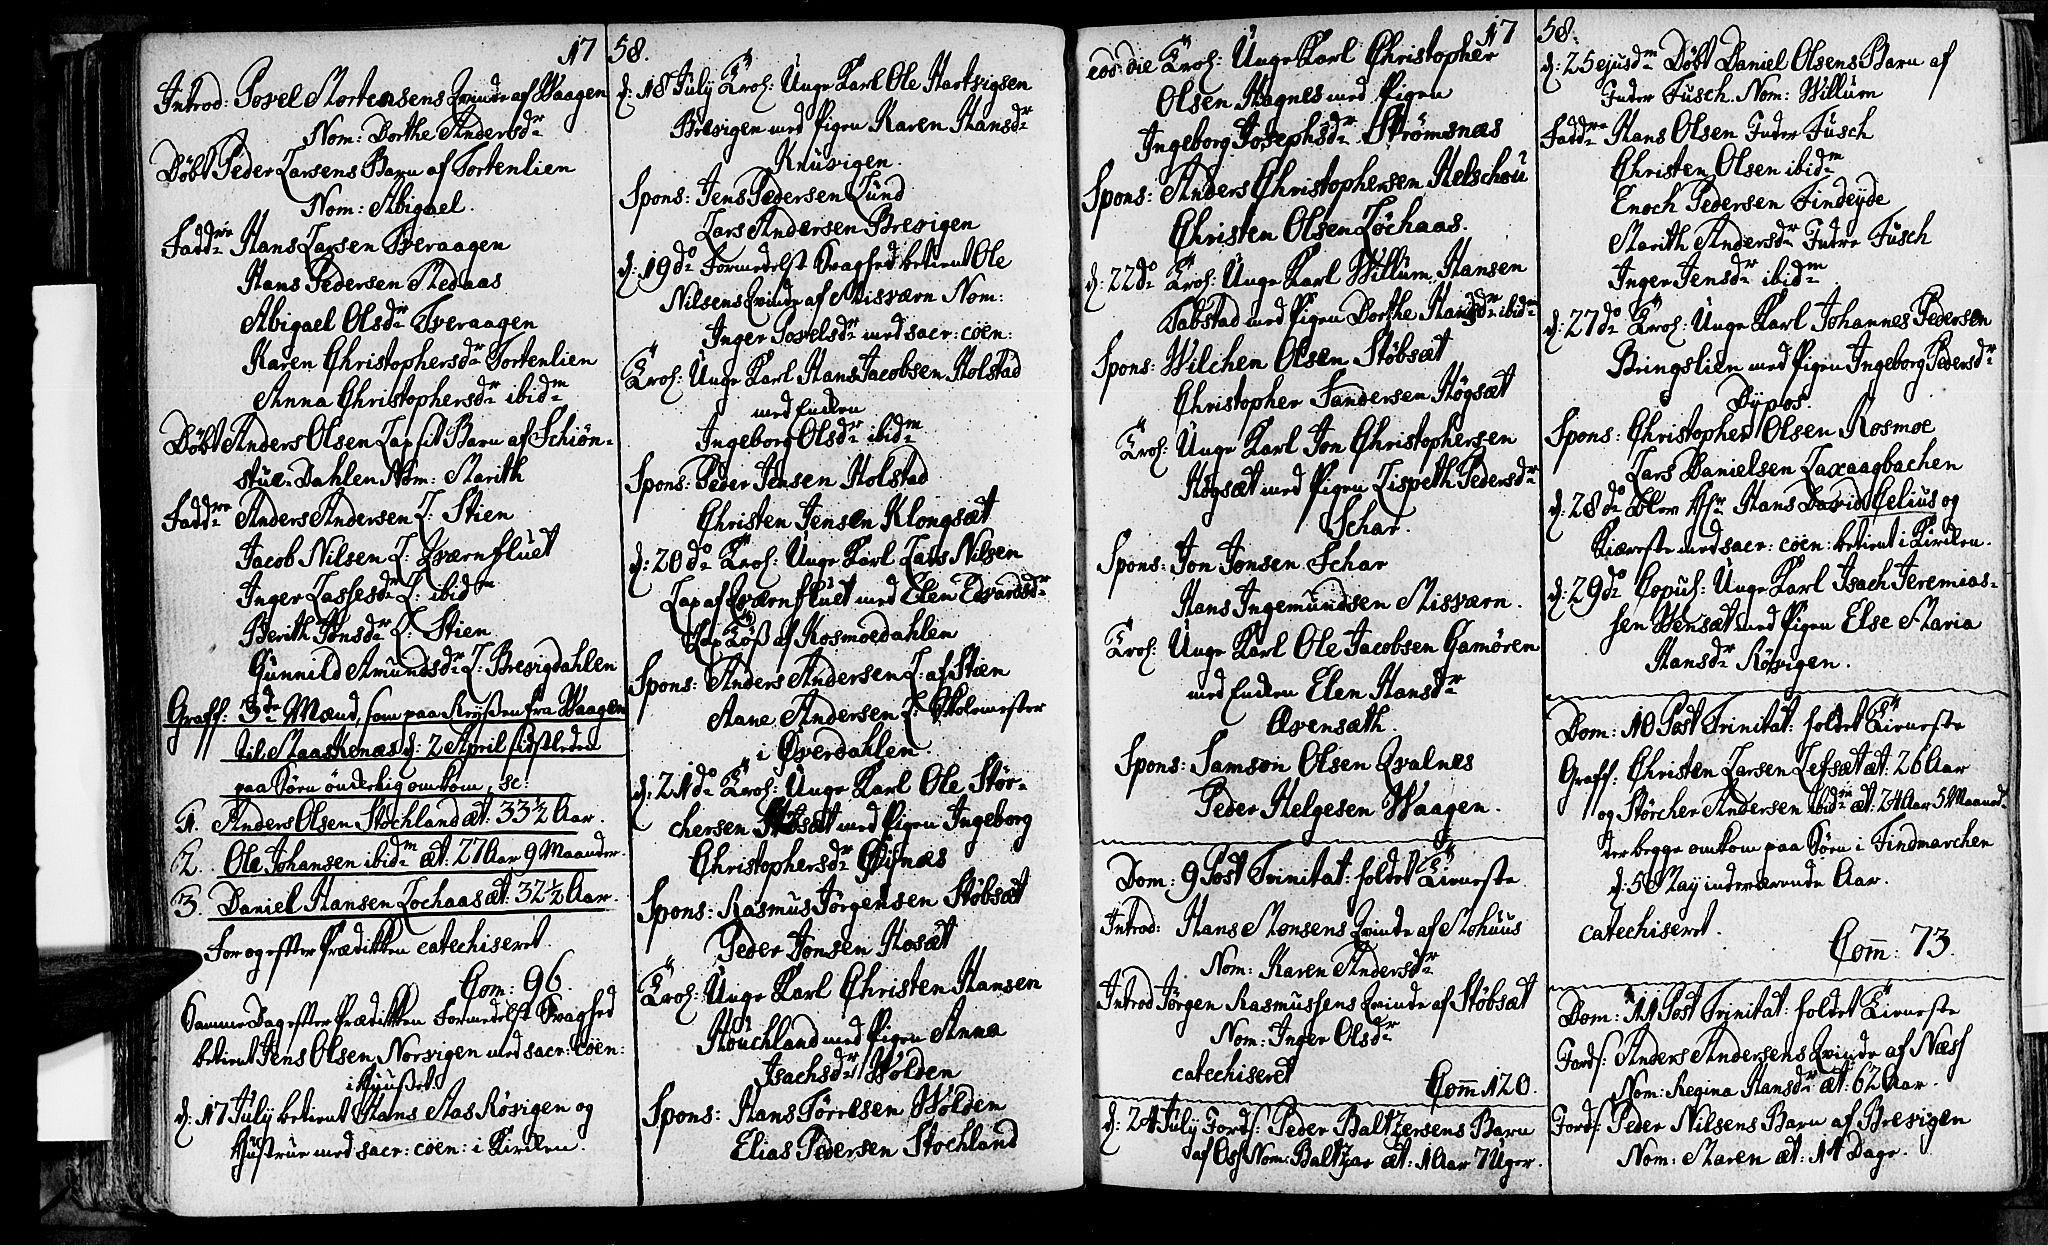 17
Introd: Povel Mortensens Qvinde af Waagen
Nom: Dorthe Andersdr
Döbt Peder Larsens Barn af Tortenlien
Nom: Abigael.
Faddre Hans Larsen Tveraagen
Hans Pedersen Medaas
Abigael Olsdr Tveraagen
Karen Christophersdr Tortenlien
Anna Christophersdr ibidm
Döbt Anders Olsen Lapfit Barn af Schiön-
stue-Dahlen Nom: Marith
Faddre Anders Andersen L: Stien
Jacob Nilsen L: Qværnfluet
Inger Lassesdr L: ibidm
Berith Jonsdr L: Stien
Gunnild Amundsdr L: Brevigdahlen
Graff: 3de Mænd, som paa Reyßen fra Waagen
til Maaskenæs d: 2 April sidstleden
paa Söen önderlig omkom, sc:
1. Anders Olsen Stochland æt: 33 1/2 Aar.
2. Ole Johansen ibidm æt: 27 Aar 9 Maander.
3. Daniel Hansen Lochaas æt: 32 1/2 Aar.
For og efter Prædikken catechiseret.
Com: 96.
Samme Dag efter Prædikken Formedelst Svaghed
betient Jens Olsen Norvigen med sacr: coen:
i Huußet.
d: 17 July betient Hans Aas Røsvigen og
Hustrue med sacr: coen: i Kirken.
58.
d: 18 July Trol: Unge Karl Ole Hartvigsen
Brevigen med Pigen Karen Hansdr
Kruvigen.
Spons: Jens Pedersen Lund
Lars Andersen Brevigen
d: 19do Formedelst Svaghed betient Ole
Nilsens Qvinde af Misværn Nom:
Inger Povelsdr med sacr: coen:
Trol: Unge Karl Hans Jacobsen Holstad
med Enken
Ingeborg Olsdr ibidm
Spons: Peder Jensen Holstad
Christen Jensen Klongsæt
d: 20do Trol: Unge Karl Lars Nilsen
Lap af Qværnfluet med Elen Edvardsdr
Lap Töß af Rosmoedahlen
Spons: Anders Andersen L: af Stien
Aane Andersen L: Skolemester
i Øverdahlen.
d: 21do Trol: Unge Karl Ole Stör-
chersen Støbsæt med Pigen Ingeborg
Christophersdr Øisnæs
Spons: Rasmus Jörgensen Støbsæt
Peder Jonsen Hosæt
Trol: Unge Karl Christen Hansen
Stöuchland med Pigen Anna
Isachsdr Wolden
Spons: Hans Torresen Wolden
Elias Pedersen Stochland
17
eod: die Trol: Unge Karl Christopher
Olsen Hagnes med Pigen
Ingeborg Josephsdr Strömsnæs
Spons: Anders Christophersen Helschou
Christen Olsen Löchaas.
d: 22do Trol: Unge Karl Willum Hansen
Tabstad med Pigen Dorthe Hansdr ibidm
Spons: Wilchen Olsen Støbsæt
Christopher Sandersen Högsæt
Trol: Unge Karl Jon Christophersen
Högsæt med Pigen Lispeth Pedersdr
Schar.
Spons: Jon Jonsen Schar
Hans Ingemundsen Misværn.
Trol: Unge Karl Ole Jacobsen Gamören
med Enken Elen Hansdr
Øvensæth.
Spons: Samson Olsen Qvalnes
Peder Helgesen Waagen.
Dom: 9 Post Trinitat: holdet Tieneste
Introd: Hans Monsens Qvinde af Mohuus
Nom: Karen Andersdr
Introd Jörgen Rasmussens Qvinde af Støbsæt
Nom: Inger Olsdr
catechiseret
Com 120.
d: 24 July Jords: Peder Baltzersens Barn
af Os Nom: Baltzar æt: 1 Aar 7 Uger.
58.
d: 25 ejusdm Döbt Daniel Olsens Barn af
Indre Fusch. Nom: Willum
Faddre Hans Olsen Indre Fusch
Christen Olsen ibidm
Enoch Pedersen Findeyde
Marith Andersdr Indre Fusch
Inger Jensdr ibidm
d: 27do Trol: Unge Karl Johannes Pedersen
Bringslien med Pigen Ingeborg Pedersdr
Dypos.
Spons: Christopher Olsen Rosmoe
Lars Danielsen Laxaagbachen
d: 28do blev Hr Hans David Celius og
Kiæreste med sacr: coen: betient i Kirken.
d: 29do Copul: Unge Karl Isach Jeremias-
sen Wensæt med Pigen Else Maria
Hansdr Rösvigen.
Dom: 10 Post Trinitat: holdet Tieneste
Graff: Christen Larsen Lefsæt æt: 26 Aar
og Störcher Andersen ibidm æt: 24 Aar 5 Maand:
der begge omkom paa Söen i Findmarchen
d: 5 May indeværende Aar.
catechiseret.
Com: 73.
Dom: 11 Post Trinitat: holdet Tieneste
Jords: Anders Andersens Qvinde af Næss
Nom: Regina Hansdr æt: 62 Aar.
Jords: Peder Nilsens Barn af Brevigen
Nom: Maren æt: 14 Dage.